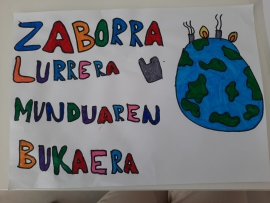 ZABORRA
LURRERA
MUNDUAREN
BUKAERA